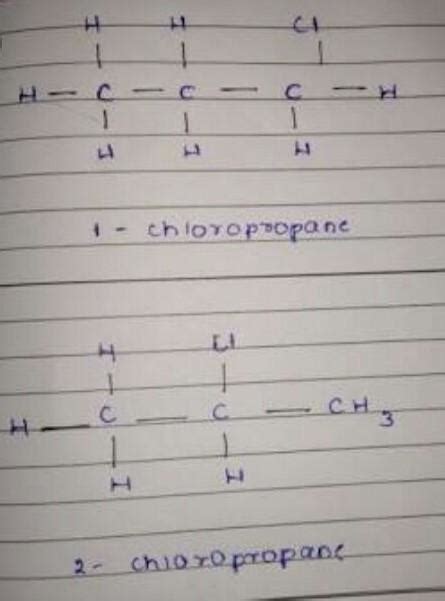 H H Cl
H — C — C — C — H
H H H
1 - chloropropane
H Cl
H — C — C — CH3
H H
2 - chloropropane